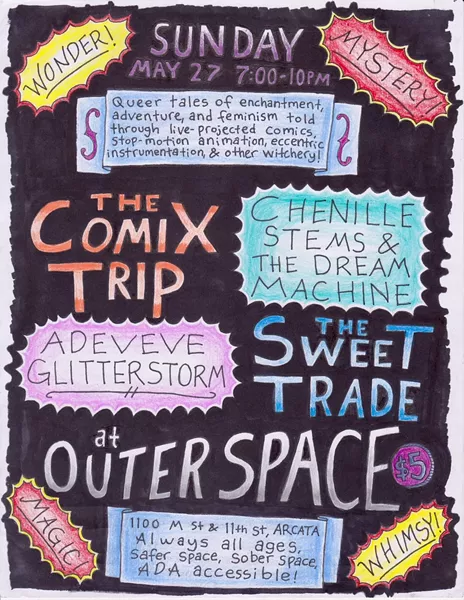 WONDER!
SUNDAY
MAY 27 7:00-10PM
MYSTERY!
Queer tales of enchantment,
adventure, and feminism told
through live-projected comics,
stop-motion animation, eccentric
instrumentation, & other witchery!
THE
COMIX
TRIP
CHENILLE
STEMS &
THE DREAM
MACHINE
ADEVEVE
GLITTERSTORM
THE
SWEET
TRADE
at
OUTER SPACE
$5
MAGIC!
1100 M St & 11th St, ARCATA
Always all ages,
Safer Space, Sober Space,
ADA accessible!
WHIMSY!